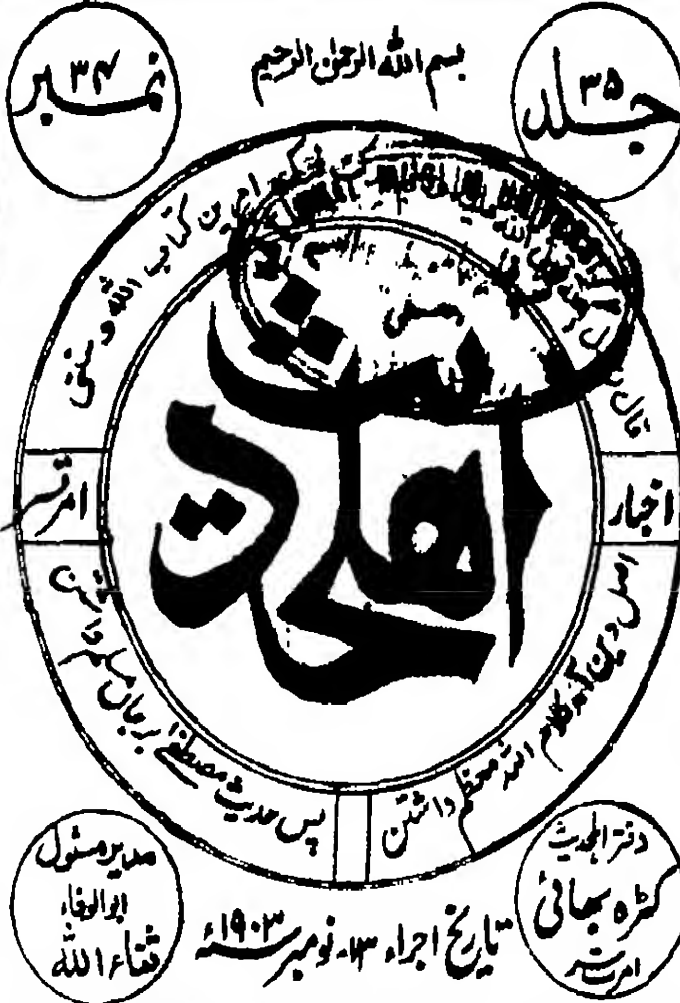 بسم اللہ الرحمٰن الرحیم
جلد ۳۵
نمبر ۳۴
قال رسول اللہ
ترکت فیکم امرین کتاب اللہ وسنتی
اخبار
اہلحدیث
امرتسر
اصل دین آمد کلام اللہ معظم داشتن
پس حدیث مصطفےٰ بر جاں مسلم داشتن
دفتر اہلحدیث
کٹڑہ بھائی
امرتسر
تاریخ اجراء ۱۳۔ نومبر ۱۹۰۳ء
مدیر مسئول
ابوالوفاء
ثناء اللہ